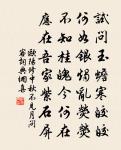 試問玉蟾寒皎皎
何如銀燭亂熒熒
不知桂魄今何在
應在吾家紫石屏
歐陽修中秋不見月問客
詞典網書